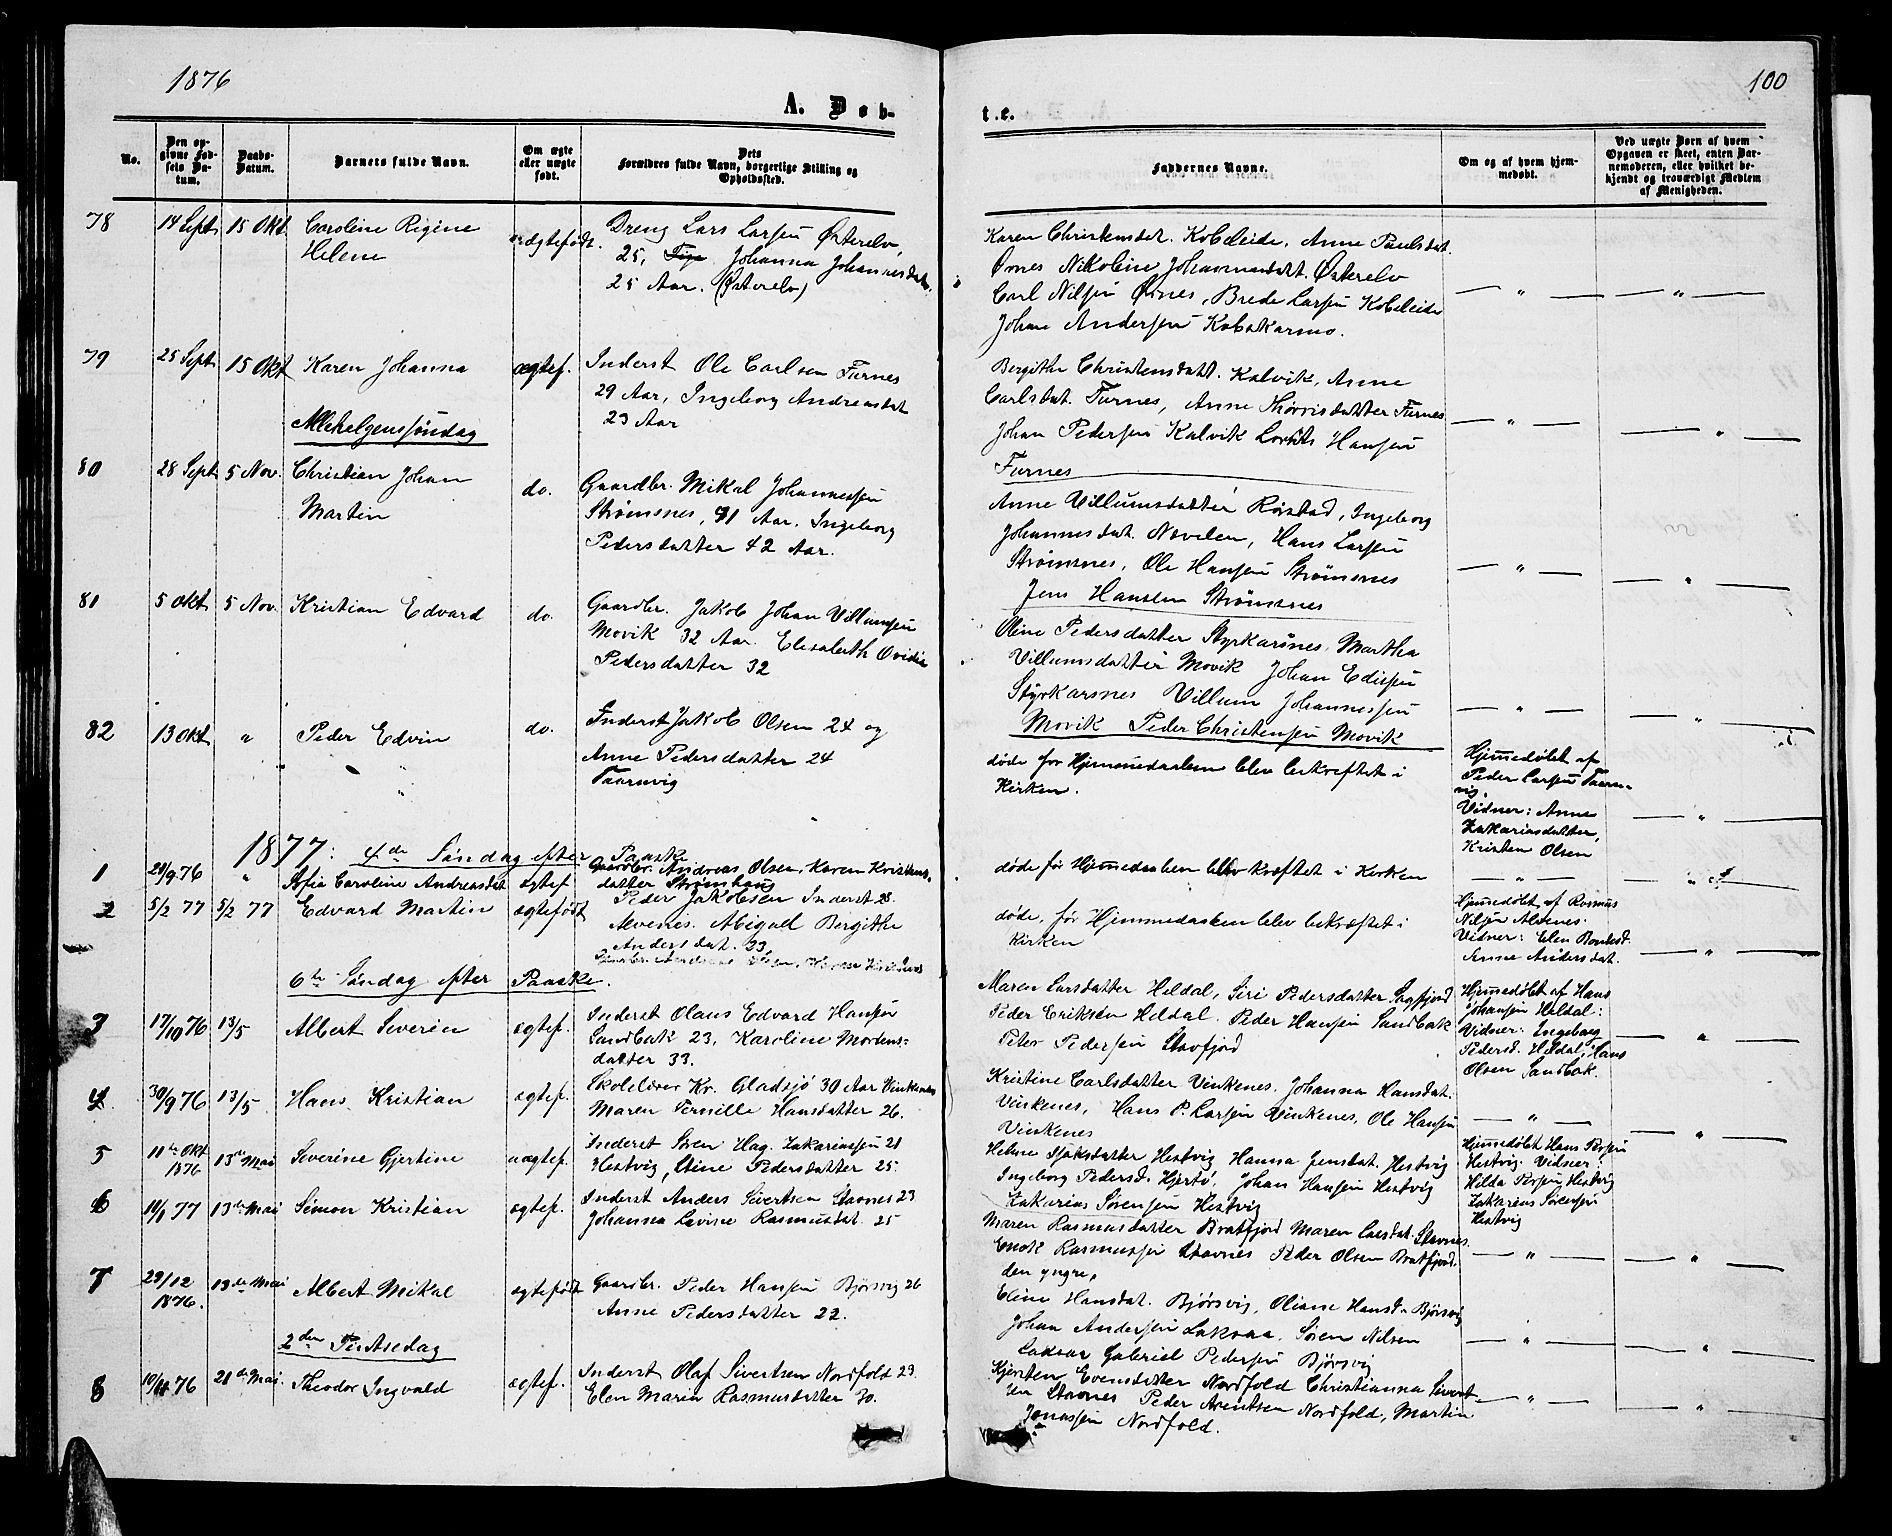 1876
100
A. Døb-
t.e.
No.
Den opgivne Fødsels Datum.
Daabs-Datum.
Barnets fulde Navn.
Om ægte eller uægte født.
Dets Forældres fulde Navn, borgerlige Stilling og Opholdssted.
Faddernes Navne.
Om og af hvem hjemmedøbt.
Ved uægte Børn af hvem Opgaven er skeet, enten Barnemoderen, eller hvilket bekjendt og troværdigt Medlem af Menigheden.
78
14 Sept.
15 Okt
Caroline Rigine
Helene
uægtefødt.
Dreng Lars Larsen Østerelv,
25, Johanna Johannesdat.
25 Aar. (Østerelv)
Karen Christensdat. Kobeleide, Anne Paulsdat.
Ørnes Nikoline Johannesdat. Østerelv
Carl Nilsen Ørnes, Brede Larsen Kobeleide
Johan Andersen Kobskarmo.
79
25 Sept.
15 Okt
Karen Johanna
ægtef.
Inderst Ole Carlsen Furnes
29 Aar, Ingeborg Andreasdat
23 Aar
Bergithe Christensdat. Kalvik, Anne
Carlsdat. Furnes, Anne Thørrisdatter Furnes
Johan Pedersen Kalvik Hansen
Furnes
Allehelgenssøndag
80
28 Sept.
5 Nov.
Christian Johan
Martin
do.
Gaardbr. Mikal Johannessen
Strømsnes, 41 Aar. Ingeborg
Pedersdatter 42 Aar.
Anne Villumsdatter Røistad, Ingeborg
Johannesdat. Nevelen, Hans Larsen
Strømsnes, Ole Hansen Strømsnes
Jens Hansen Strømsnes
81
5 Okt
5 Nov.
Kristian Edvard
do.
Gaardbr. Jakob Johan Villumsen
Movik 32 Aar. Elisabeth Ovidia
Pedersdatter 32
Oline Pedersdatter Styrkarsnes. Martha
Villumsdatter Movik Johan Edisen
Styrkarsnes Villum Johannessen
Movik Peder Christensen Movik
82
13 Okt
"
Peder Edvin
do.
Inderst Jakob Olsen 24 og
Anne Pedersdatter 24
Taarnvig
døde før Hjemmedaaben blev bekræftet i
Kirken.
Hjemmedøbt af
Peder Larsen Taarn-
vig.
Vidner: Anna
Zakariasdatter,
Kristen Olsen
1877: 4de Søndag efter Paaske
1
21/9 76
"
Sofia Caroline Andreasdat
ægtef
Gaardbr. Andreas Olsen, Karen Kristians-
datter Strømhaug
døde før Hjemmedaaben blev kræftet i Kirken
2
5/2 77
5/2 77
Edvard Martin
ægtefødt
Peder Jakobsen Inderst 28.
Alvenes. Abigael Bergithe
Andersdat. 33,
døde, før Hjemmedaaben blev bekræftet i
Kirken
Hjemmedøbt af Rasmus
Nilsen Alvenes.
Vidner: Elen Bondesd.
Anne Andersdat.
6te Søndag efter Paaske.
3
17/10 76
13/5
Albert Severin
ægtef.
Inderst Olaus Edvard Hansen
Sandbak 23, Karoline Mortens-
datter 33.
Maren Larsdatter Heldal, Siri Pedersdatter Sagfjord
Peder Eriksen Heldal. Peder Hansen Sandbak
Peter Pedersen Stavfjord
Hjemmedøbt af Hans
Johansen Heldal:
Vidner: Ingeborg
Pedersd. Heldal, Hans
Olsen Sandbak.
4
30/9 76
13/5
Hans Kristian
ægtef.
Skolelærer Kr. Gladsjø 30 Aar Vinkenes
Maren Pernille Hansdatter 26.
Kristine Carlsdatter Vinkenes. Johanna Hansdat.
Vinkenes, Hans P. Larsen Vinkenes, Ole Hansen
Vinkenes
5
11te Okt
1876
13de Mai
Severine Gjertine
uægtef.
Inderst Søren Hag. Zakariassen 21
Hestvig, Stine Pedersdatter 25.
Helene Isaksdatter Hestvig Hanna Jensdat. Hestvig
Ingeborg Pedersd. Hjertø, Johan Hansen Hestvig
Zakarias Sørensen Hestvig
Hjemmedøbt Hans Persen
Hestvig. Vidner:
Hilda Persen, Hestvig
Zakarias Sørensen
Hestvig
6
10/1 77
13de Mai
Simon Kristian
ægtef.
Inderst Anders Sivertsen Stavnes 23
Johanna Lavine Rasmusdat. 25
Maren Rasmusdatter Bratfjord Maren Larsdat. Stavnes.
Enok Rasmussen Stavnes Peder Olsen Bratfjord.
den yngre,
7
29/12
1876.
13de Mai
Albert Mikal
ægtefødt
Gaardbr. Peder Hansen Bjørsvig 26
Anne Pedersdatter 22.
Eline Hansdat. Bjørsvig, Oliane Hansd. Bjørsvig
Johan Andersen Laksaa. Søren Nilsen
Laksaa Gabriel Pedersen Bjørsvig
2den Pintsedag
8
76
21de Mai.
Theodor Ingvald
ægtef.
Inderst Olaf Sivertsen Nordfold 23
Elen Maria Rasmusdatter 30.
Kjersten Evensdatter Nordfold Christianna Sivert-
sen Stavnes Peder Arentsen Nordfold, Martin
Jonassen Nordfold.